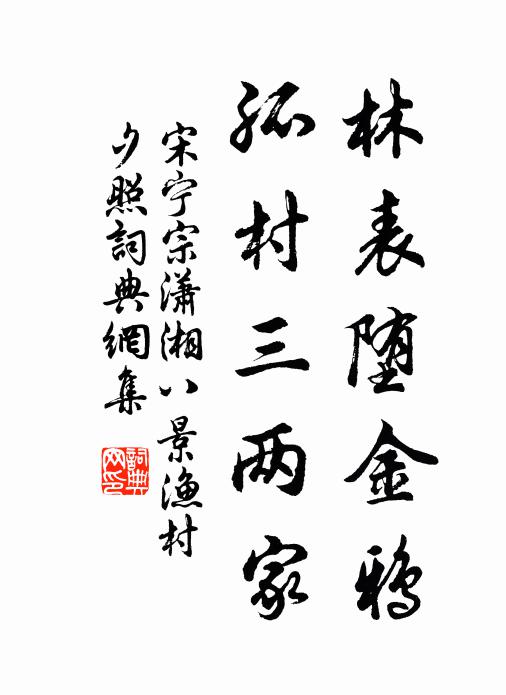 林表堕金鸦
孤村三两家
宋宁宗潇湘八景渔村
夕照詞典網集
詞典网印